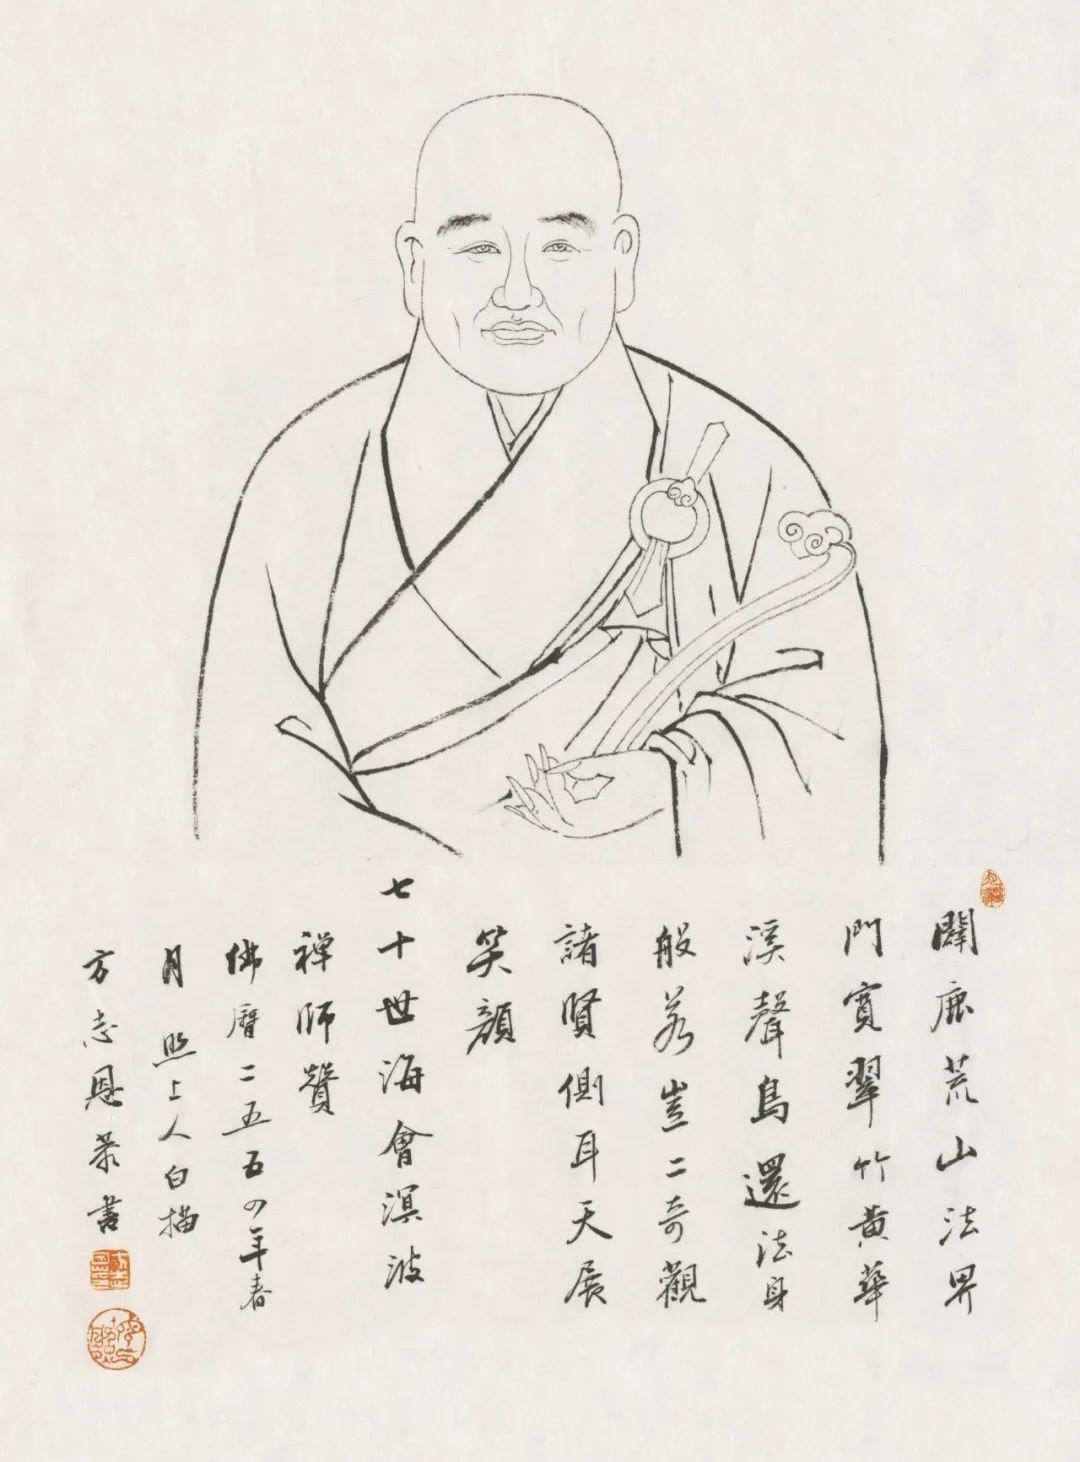 闢鹿荒山法界
門寬翠竹黃華
溪聲鳥還法身
般若豈二奇觀
諸賢側耳天展
笑顏
七十世海會溟波
禪師贊
佛曆二五五四年春
月照上人白描
方志恩恭書